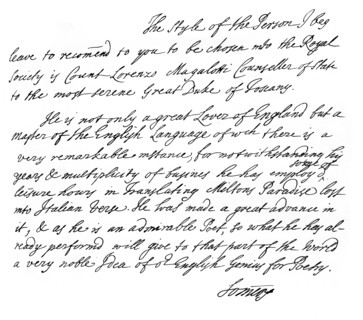 The Style of the Person I beg
leave to recom̄end to you to be chosen into the Royal
Society is Count Lorenzo Magalotti Counseller of State
to the most serene Great Duke of Toscany.
He is not only a great Lover of England but a
master of the English Language of wch there is a
very remarkable instance, for notwithstanding his
years & multiplicity of busines he has employ'd some of his
leisure hours in Translating Miltons Paradise lost
into Italian Verse. He has made a great advance in
it, & as he is an admirable Poet, so what he has al-
ready performed will give to that part of the World
a very noble Idea of or English Genius for Poetry.
Somers